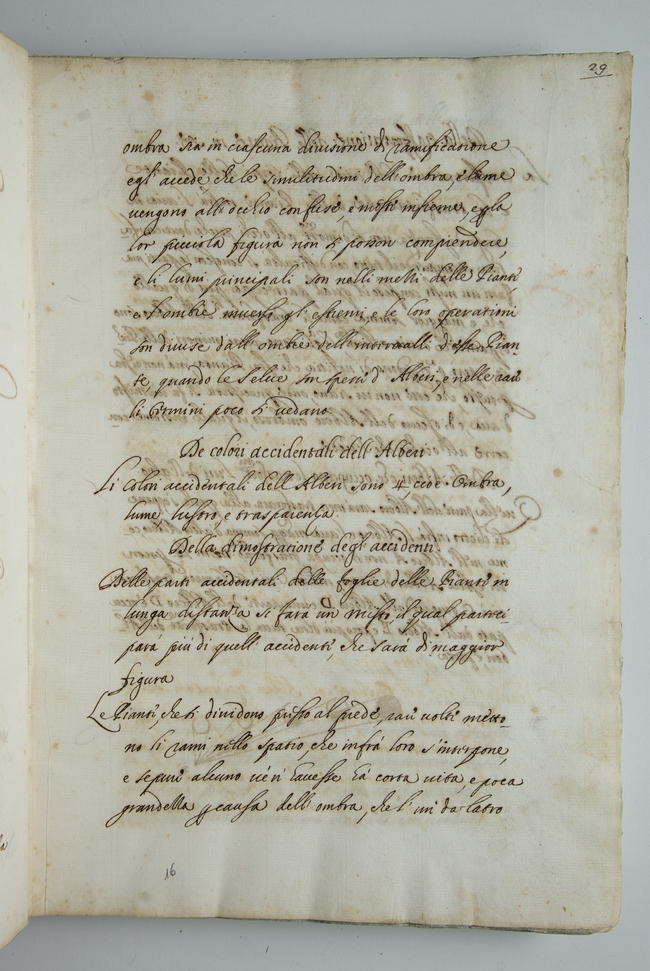 29
ombra sia in ciascuna divisione di ramificatione
egl' accede che le similitudini dell' ombra, e lume
vengono all' occhio confuse, e miste insieme, e p la
lor picciola figura non si posson comprendere,
e li lumi principali son nelli mezzi delle Pianti,
e l' ombre inverso gl' estremi, e le loro operationi
son divise dall' ombre dell' intervalli d' esse Pian-
te, quando le Selve son spesse d' Alberi, e nelle rari
li termini poco si vedano
De colori accidentali dell' Alberi
Li Colori accidentali dell' Alberi sono 4, cioè. Ombra,
lume, lustro, e trasparenza.
Della dimostratione degl' accidenti.
Delle parti accidentali delle foglie delle Pianti in
lunga distanza si farà un misto il qual parteci-
parà più di quell' accidenti, che sarà di maggior
figura
Le Pianti, che si dividono presso al piede, rari volti metto-
no li rami nello spatio, che infrà loro s' interpone,
e se pure alcuno ve n' havesse hà corta vita, e poca
grandezza p causa dell' ombra, che l' un da l' altro
16